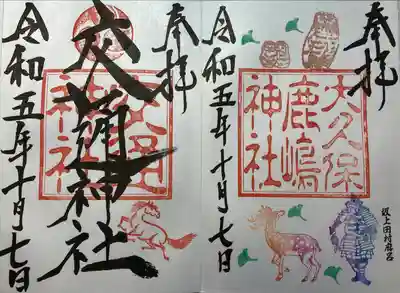 奉拝
大久保
鹿嶋
神社
令和五年十月七日
坂上田村麻呂
奉拝
神社
神社
令和五年十月七日